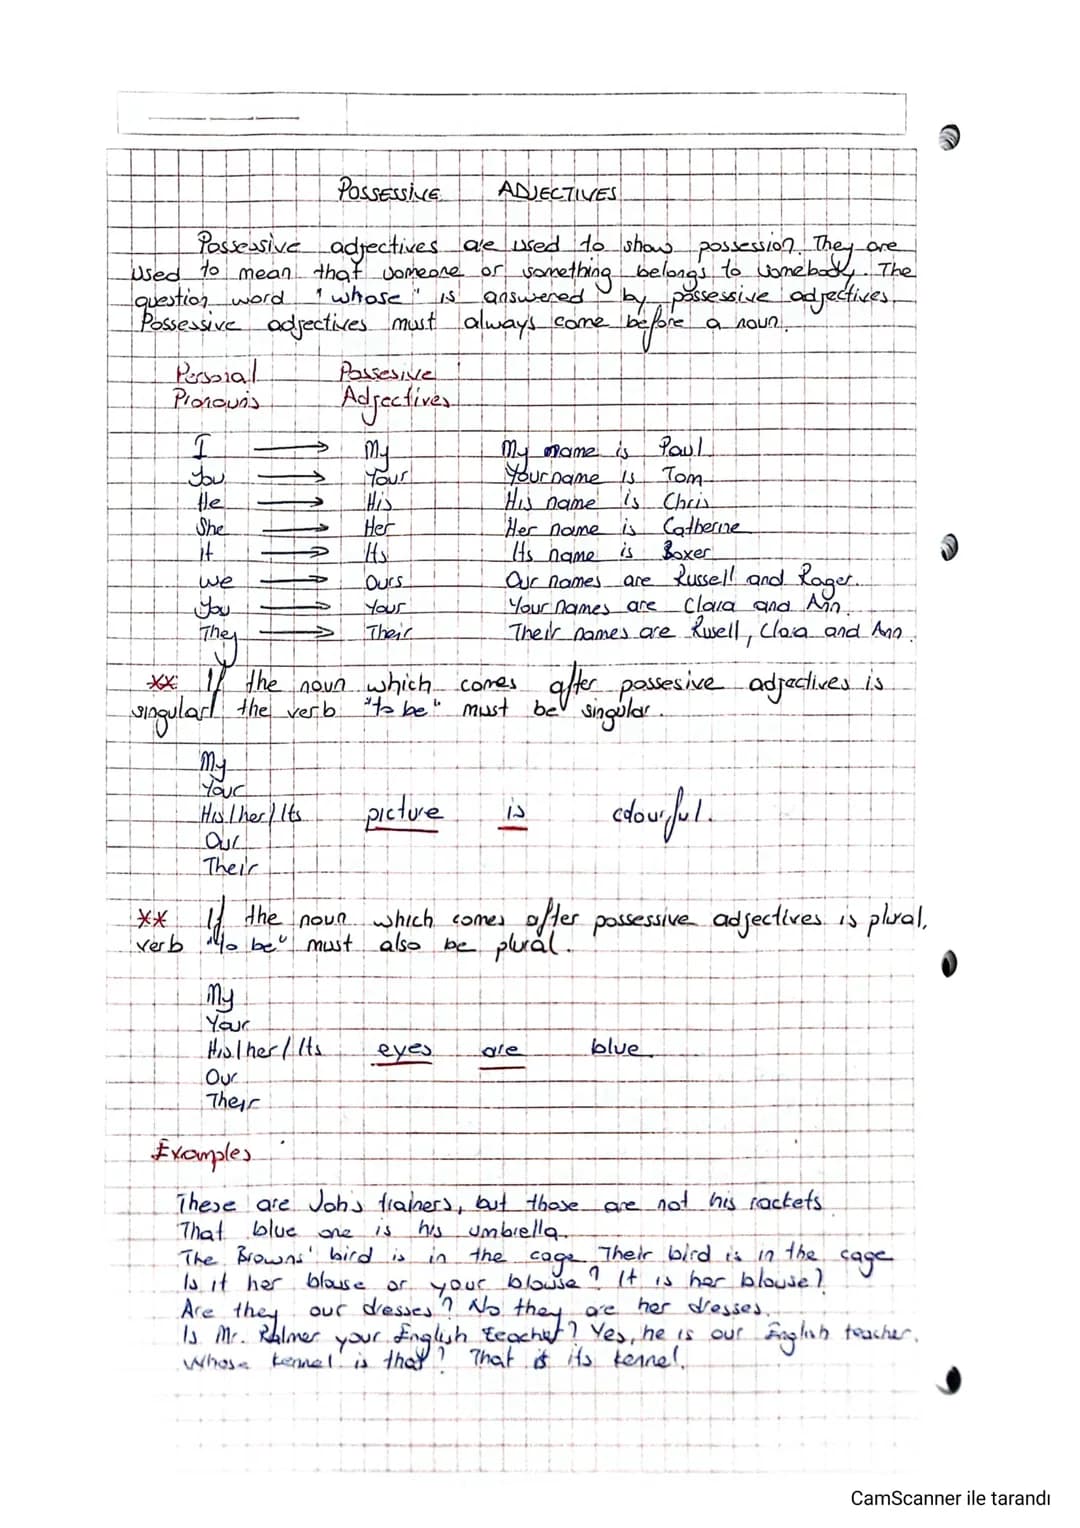 POSSESSIVE ADJECTIVES
Possessive adjectives are used to show possession. They are
used to mean that someone or something belongs to somebody. The
question word "whose" is answered by possessive adjectives.
Possessive adjectives must always come before a noun.
Personal Possesive
Pronouns Adjectives
I → My My name is Paul
You → Your Your name is Tom
He → His His name is Chris
She → Her Her name is Catherine
It → Its Its name is Boxer
we → Ours Our names are Russell and Roger.
You → Your Your names are Clara and Ann.
They → Their Their names are Rusell, Clara and Ann.
** If the noun which comes after possesive adjectives is
singular the verb "to be" must be singular.
My
Your
His/her/Its picture is colourful.
Our
Their
** If the noun which comes after possessive adjectives is plural,
verb "to be" must also be plural.
My
Your
His/her/Its eyes are blue
Our
Their
Examples
These are Joh's trainers, but those are not his rackets
That blue one is his umbrella.
The Browns' bird is in the cage Their bird is in the cage
Is it her blouse or your blouse? It is her blouse?
Are they our dresses? No they are her dresses.
Is Mr. Palmer your English teacher? Yes, he is our English teacher.
Whose kennel is that? That is its kennel.
CamScanner ile tarandı